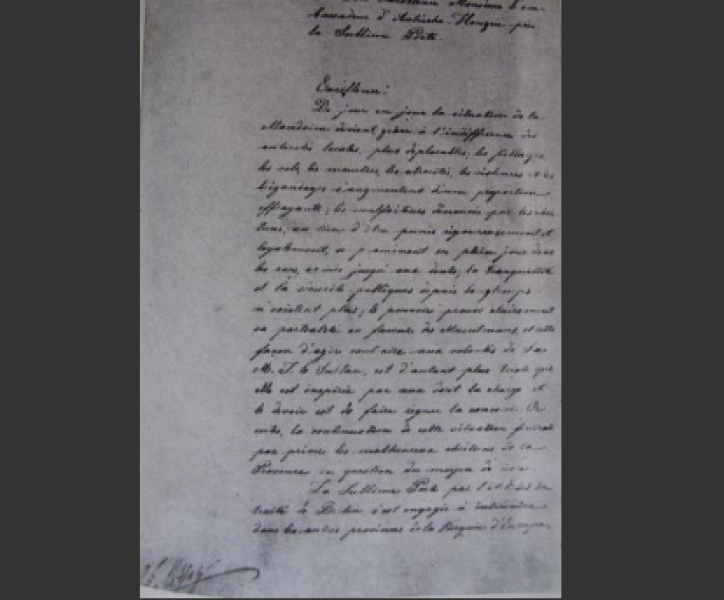 Son Excellence Monsieur l'am-
bassadeur d'Autriche-Hongrie près
la Sublime Porte.
Excellence!
De jour en jour la situation de la
Macédoine devient grâce à l'indifférence des
autorités locales, plus déplorable; les pillages,
les vols, les meurtres, les atrocités, les
brigandages s'augmentent d'une proportion
effrayante; les malfaiteurs dénoncés par les
au lieu d'être punis rigoureusement et
loyalement, se promènent en plein jour dans
les rues, armés jusqu'aux dents; la tranquillité
et la sécurité publiques depuis longtemps
n'existent plus; le pouvoir prouve clairement
sa partialité en faveur des Musulmans, et cette
façon d'agir contraire aux volontés de Sa
M. I. le Sultan, est d'autant plus triste que
elle est inspirée par ceux dont la charge et
le devoir est de faire régner la
la continuation de cette situation finirait
par priver les malheureux chrétiens de la
Province en question du moyen de
La Sublime Porte par l'art. 23 du
traité de Berlin s'est engagée à introduire
dans les autres provinces de la Turquie d'Europe